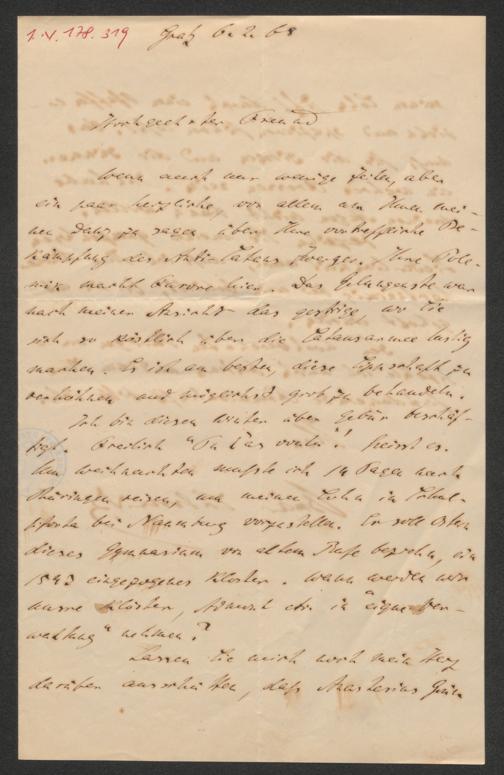 I.N. 178.319
Graz 6. 2. 68
Hochgeehrter Freund
Wenn auch nur wenige Zeilen, aber
ein paar herzliche, vor allem um Ihnen mei-
nen Dank zu sagen über Ihre vortreffliche Be-
kämpfung des Anti-Catans Zwerger. Ihre Pole-
mik macht Furore hier. Das Gelungenste war
nach meiner Ansicht das gestrige, wo Sie
sich so köstlich über die Catansarmee lustig
machen. Es ist am besten, diese Sippschaft zu
verhöhnen und möglichst grob zu behandeln.
Ich bin diesen Winter über Gebür beschäf-
tigt. Freilich "Tu l'as voulu"! heisst es.
Um Weihnachten musste ich 14 Tage nach
Thüringen reisen, um meinen Sohn in Schul-
pforta bei Naumburg vorzustellen. Er soll Ostern
dieses Gymnasium von altem Rufe beziehn, ein
1543 eingezogenes Kloster. Wann werden wir
unsre Klöster, Admont etc. in "eigne Ver-
waltung" nehmen?
Lassen Sie mich noch mein Herz
darüber ausschütten, daß Anastasius Grün